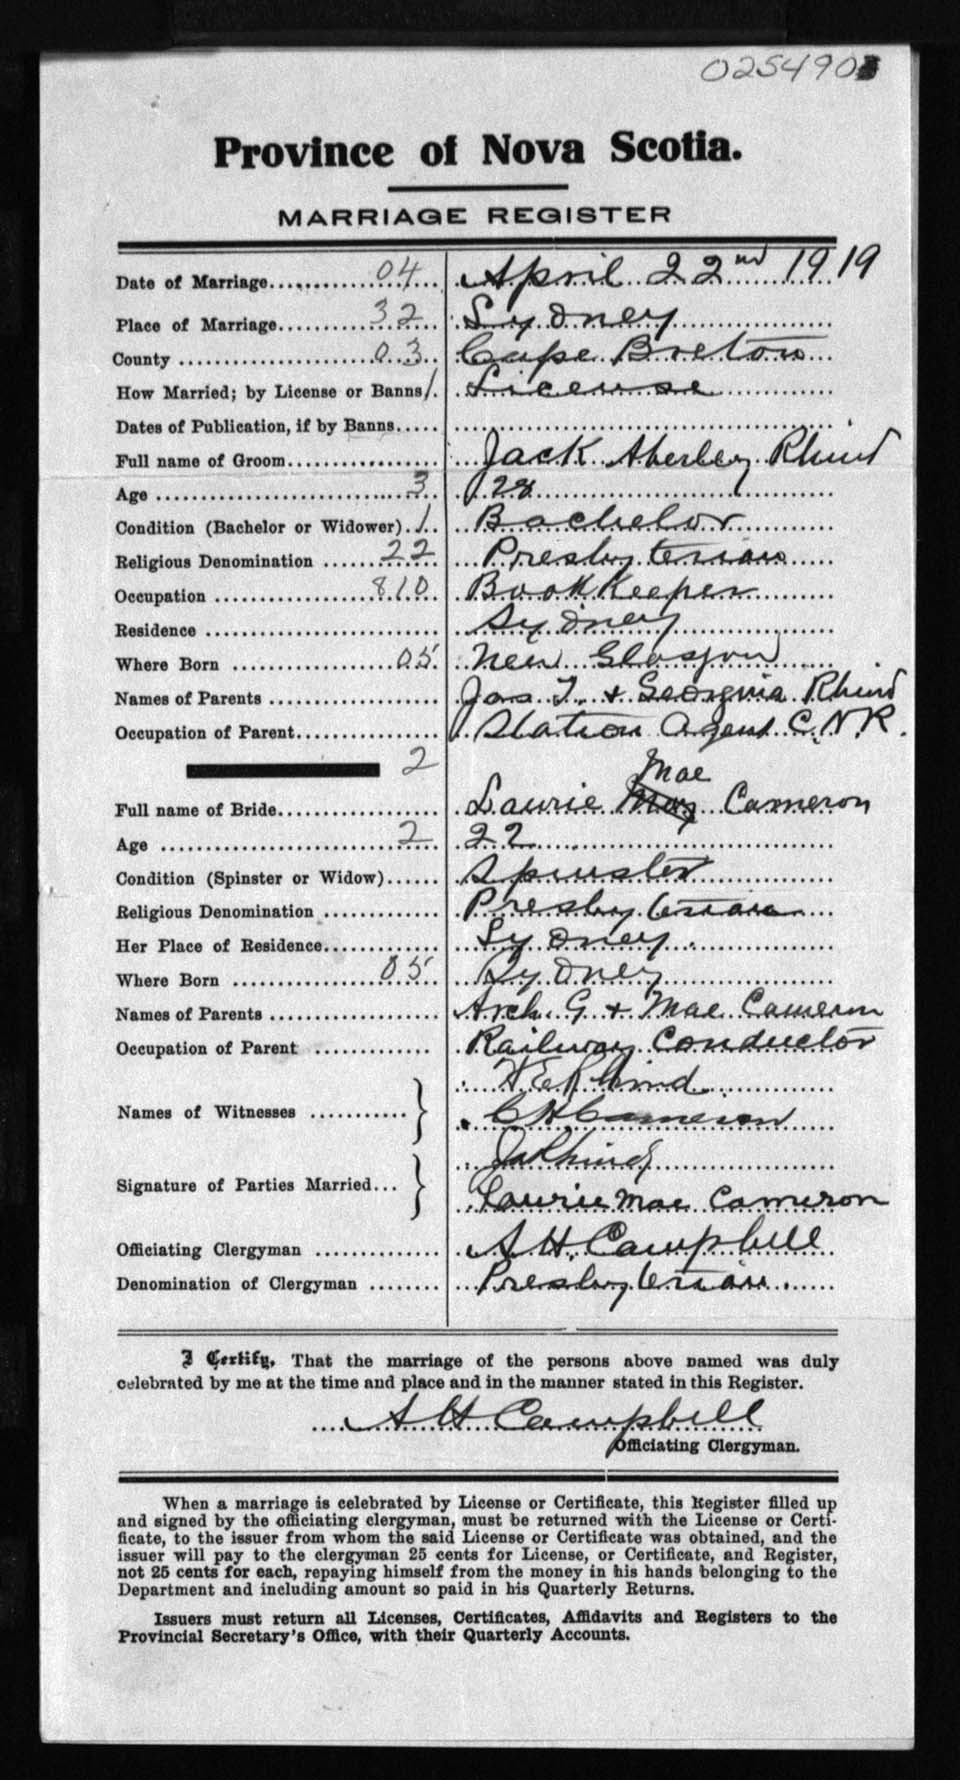 025490
Province of Nova Scotia.
MARRIAGE REGISTER
Date of Marriage 04 April 22nd 1919
Place of Marriage 32 Sydney
County 03 Cape Breton
How Married; by License or Banns 1 License
Dates of Publication, if by Banns
Full name of Groom Jack Aberley Rhind
Age 3 28
Condition (Bachelor or Widower) 1 Bachelor
Religious Denomination 22 Presbyterian
Occupation 810 Book Keeper
Residence Sydney
Where Born 05 New Glasgow
Names of Parents Jas T. & Georgina Rhind
Occupation of Parent Station Agent C.N.R.
2
Mae
Full name of Bride Laurie May Cameron
Age 2 22
Condition (Spinster or Widow) Spinster
Religious Denomination Presbyterian
Her Place of Residence Sydney.
Where Born 05 Sydney
Names of Parents Arch. G & Mae Cameron
Occupation of Parent Railway Conductor
H E Rhind
Names of Witnesses
C H Cameron
Ja Rhind
Signature of Parties Married
Laurie Mae Cameron
Officiating Clergyman A. H. Campbell
Denomination of Clergyman Presbyterian.
I Certify, That the marriage of the persons above named was duly
celebrated by me at the time and place and in the manner stated in this Register.
A H Campbell
Officiating Clergyman.
When a marriage is celebrated by License or Certificate, this Register filled up
and signed by the officiating clergyman, must be returned with the License or Certi-
ficate, to the issuer from whom the said License or Certificate was obtained, and the
issuer will pay to the clergyman 25 cents for License, or Certificate, and Register,
not 25 cents for each, repaying himself from the money in his hands belonging to the
Department and including amount so paid in his Quarterly Returns.
Issuers must return all Licenses, Certificates, Affidavits and Registers to the
Provincial Secretary's Office, with their Quarterly Accounts.